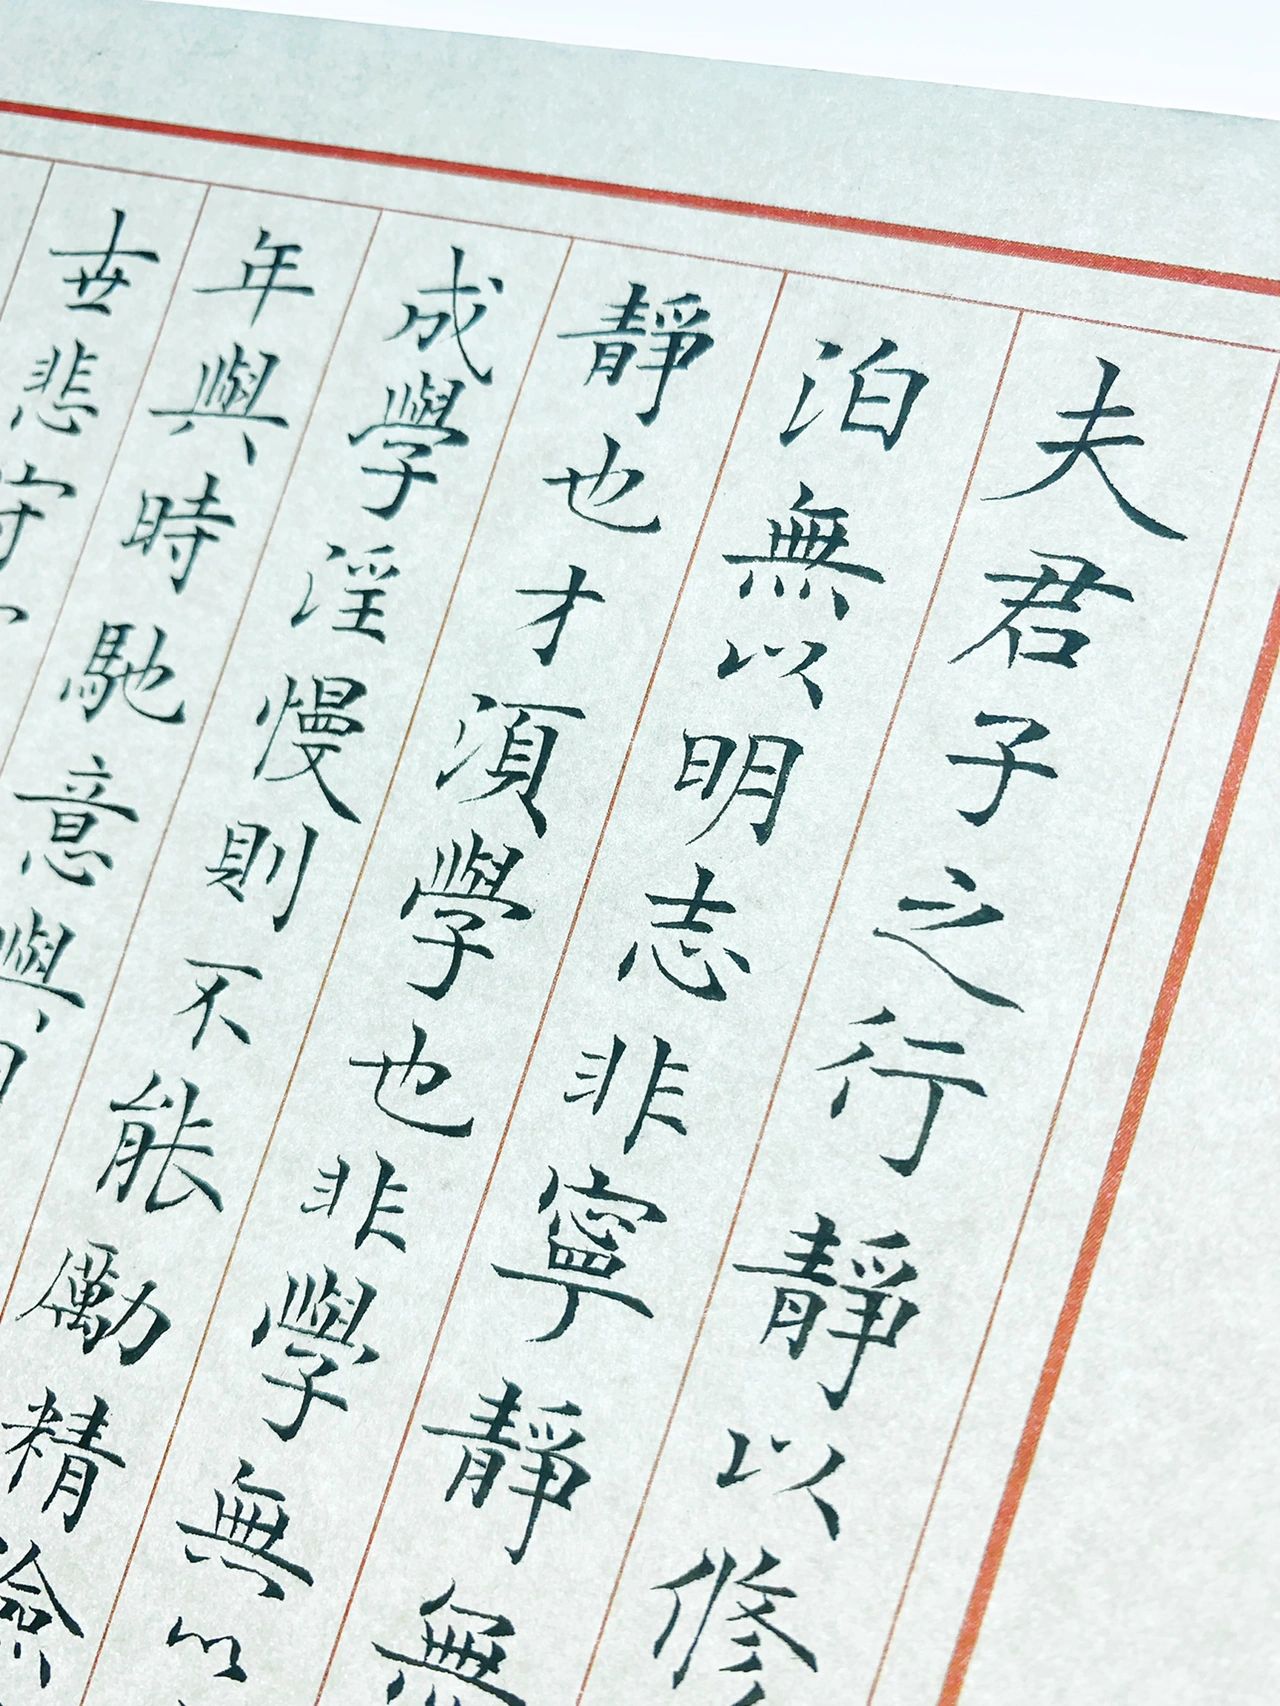 夫君子之行靜以修
泊無以明志非寧靜無
靜也才須學也非學無以
成學淫慢則不能勵精險
年與時馳意與日
世悲守